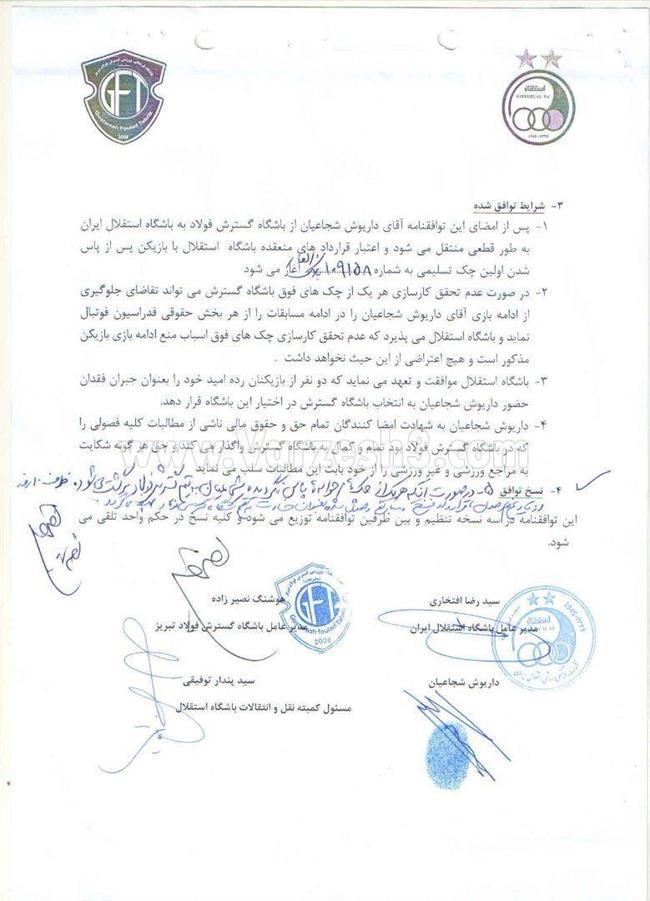 GFT
Gostaresh Foulad Tabriz
2008
استقلال
ESTEGHLAL F.C
۳- شرایط توافق شده
۱- پس از امضای این توافقنامه آقای داریوش شجاعیان از باشگاه گسترش فولاد به باشگاه استقلال ایران
به طور قطعی منتقل می شود و اعتبار قرارداد های منعقده باشگاه استقلال با بازیکن پس از پاس
شدن اولین چک تسلیمی به شماره ۱۰۹۱۵۸ آغاز می شود
۲- در صورت عدم تحقق کارسازی هر یک از چک های فوق باشگاه گسترش می تواند تقاضای جلوگیری
از ادامه بازی آقای داریوش شجاعیان را در ادامه مسابقات را از هر بخش حقوقی فدراسیون فوتبال
نماید و باشگاه استقلال می پذیرد که عدم تحقق کارسازی چک های فوق اسباب منع ادامه بازی بازیکن
مذکور است و هیچ اعتراضی از این حیث نخواهد داشت .
۳- باشگاه استقلال موافقت و تعهد می نماید که دو نفر از بازیکنان رده امید خود را بعنوان جبران فقدان
حضور داریوش شجاعیان به انتخاب باشگاه گسترش در اختیار این باشگاه قرار دهد.
۴- داریوش شجاعیان به شهادت امضا کنندگان تمام حق و حقوق مالی ناشی از مطالبات کلیه فصولی را
که در باشگاه گسترش فولاد بود تمام و کمال به باشگاه گسترش واگذار می کند و حق هر گونه شکایت
به مراجع ورزشی و غیر ورزشی را از خود بابت این مطالبات سلب می نماید
www.Varzesh3.com
۴- نسخ توافق
۵- در صورت آنکه هر یک از چک های
این توافقنامه در سه نسخه تنظیم و بین طرفین توافقنامه توزیع می شود و کلیه نسخ در حکم واحد تلقی می
شود.
سید رضا افتخاری
هوشنگ نصیر زاده
مدیر عامل باشگاه استقلال ایران
مدیر عامل باشگاه گسترش فولاد تبریز
GFT
2008
داریوش شجاعیان
سید پندار توفیقی
مسئول کمیته نقل و انتقالات باشگاه استقلال